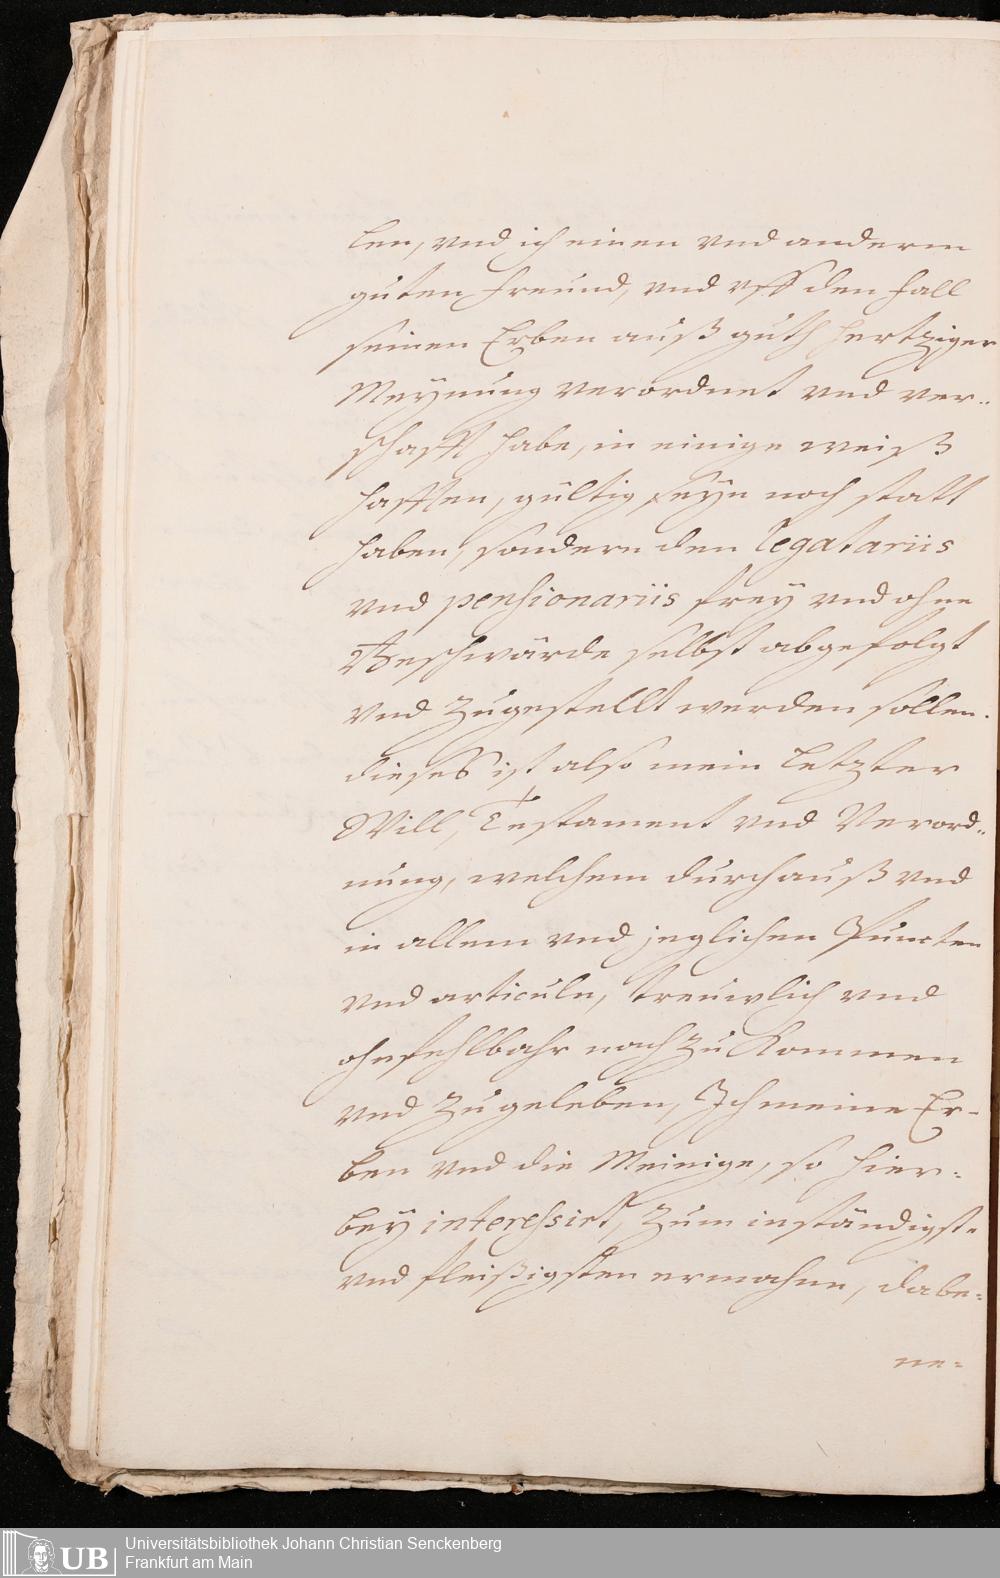 len, vnd ich einen vnd anderm
guten Freund, vnd vff den fall
seinen Erben auß guth hertziger
Meynung verordnet vnd ver-
schafft habe, in einige weiß
hafften, gültig seyn noch statt
haben, sondern den legatariis
vnd pensionariis frey vnd ohne
Beschwärde selbst abgefolgt
vnd zugestellt werden sollen.
dieses ist also mein letzter
Will, Testament vnd Verord-
nung, welchem durchauß vnd
in allem vnd jeglichen Puncten
vnd articuln, treuwlich vnd
ohnfehlbahr nach zu kommen
vnd zu geleben, Ich meine Er-
ben vnd die Meinige, so hier-
bey interessirt, zum inständigst-
vnd fleißigsten ermahne, dabe-
ne-
UB
Universitätsbibliothek Johann Christian Senckenberg
Frankfurt am Main